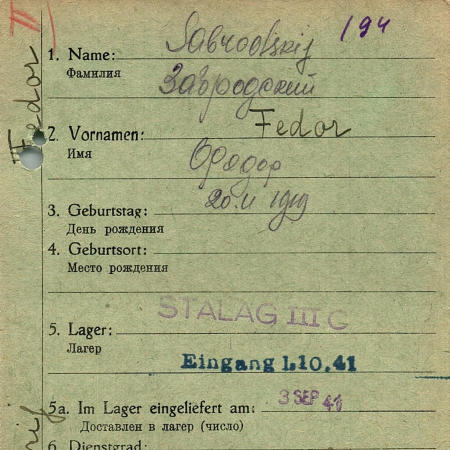 II
194
1. Name: Sabrodskij
Фамилия Забродский
Fedor
2. Vornamen: Fedor
Имя Федор
3. Geburtstag: 20.11 1919
День рождения
4. Geburtsort:
Место рождения
STALAG III C
5. Lager:
Лагерь
Eingang 1.10.41
5a. Im Lager eingeliefert am: 3 SEP 41
Доставлен в лагерь (число)
6. Dienstgrad: